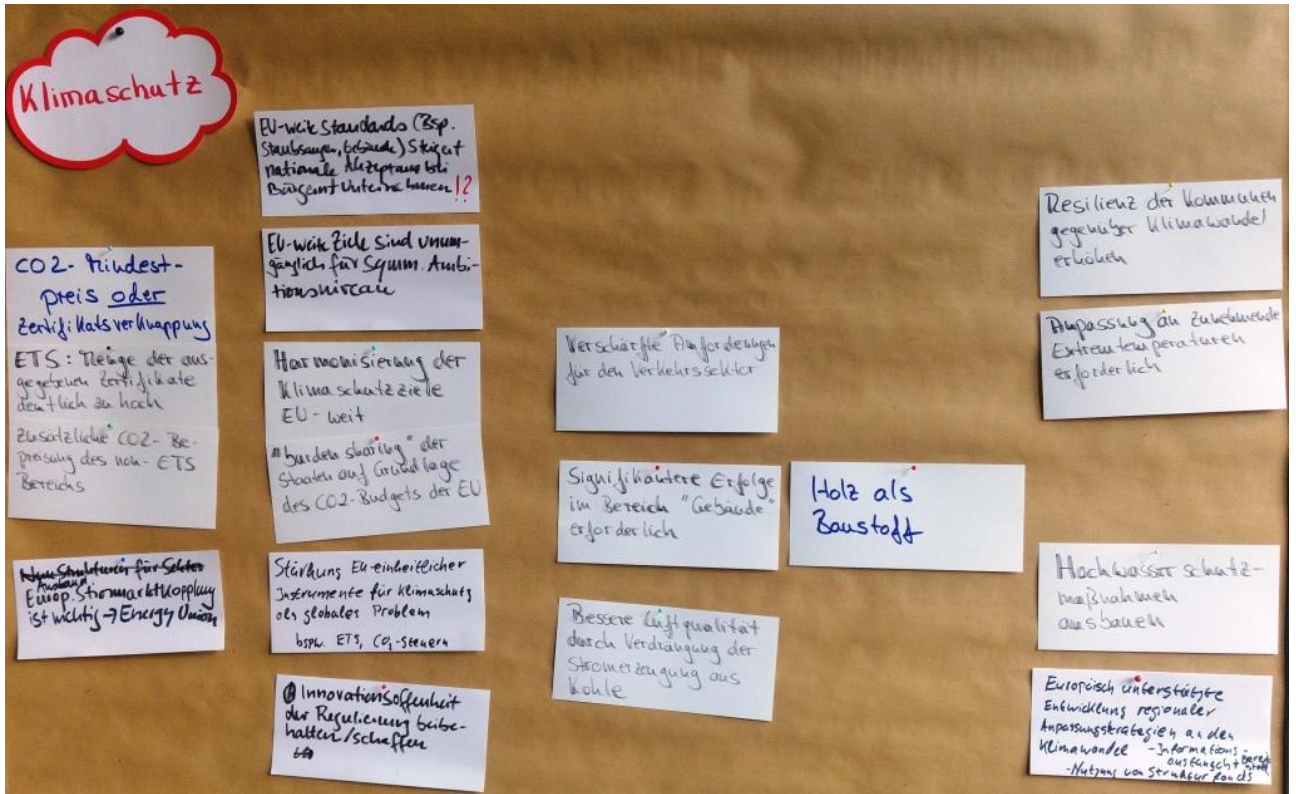 Klimaschutz
CO2-Mindest-
preis oder
Zertifikatsverknappung
ETS: Menge der aus-
gegebenen Zertifikate
deutlich zu hoch
Zusätzliche CO2-Be-
preisung des non-ETS
Bereichs
Ausbau
Europ. Strommarktkopplung
ist wichtig → Energy Union
EU-weite Standards (Bsp.
Staubsauger, Gebäude) steigert
nationale Akzeptanz bei
Bürger+Unternehmen !?
EU-weite Ziele sind unum-
gänglich für Ambi-
tionsniveau
Harmonisierung der
Klimaschutzziele
EU-weit
"burden sharing" der
Staaten auf Grundlage
des CO2-Budgets der EU
Stärkung EU-einheitlicher
Instrumente für Klimaschutz
als globales Problem
bspw. ETS, CO2-Steuern
Innovationsoffenheit
der Regulierung beibe-
halten/schaffen
Verschärfte Anforderungen
für den Verkehrssektor
Signifikantere Erfolge
im Bereich "Gebäude"
erforderlich
Bessere Luftqualität
durch Verdrängung der
Stromerzeugung aus
Kohle
Holz als
Baustoff
Resilienz der Kommunen
gegenüber Klimawandel
erhöhen
Anpassung an zunehmende
Extremtemperaturen
erforderlich
Hochwasserschutz-
maßnahmen
ausbauen
Europäisch unterstützte
Entwicklung regionaler
Anpassungsstrategien an den
Klimawandel - Informations-
austausch +
- Nutzung von Strukturfonds